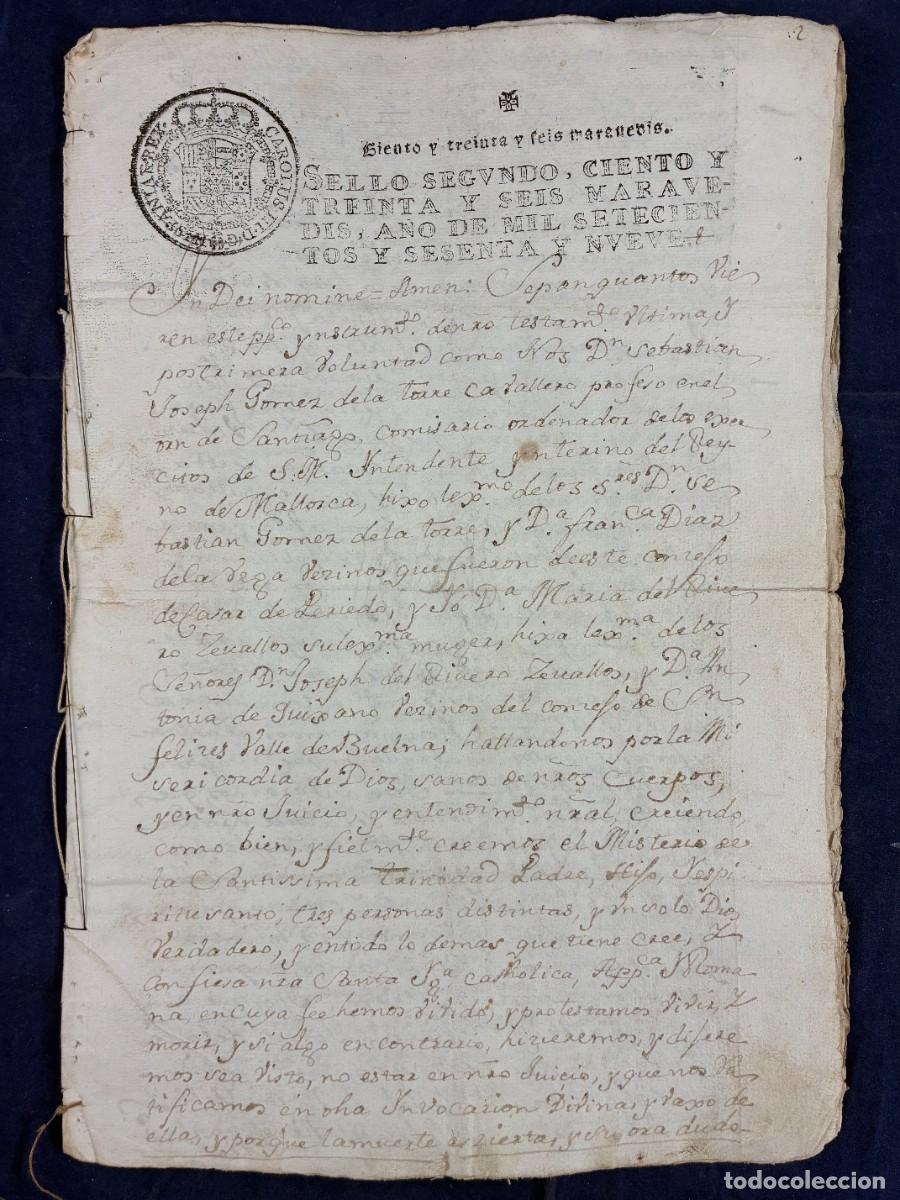 2
CAROLUS III D. G. HISPANIAR. REX.
Ciento y treinta y seis marauedis.
SELLO SEGVNDO, CIENTO Y
TREINTA Y SEIS MARAVE-
DIS, AÑO DE MIL SETECIEN-
TOS Y SESENTA Y NVEVE.
In Dei nomine = Amen: Sepan quantos vie
ren este ppco. ynstrumto. de nro testamto. Vltima, Y
postrimera Voluntad como Nos Dn. Sebastian
Joseph Gomez dela torre Cavallero profeso enel
orn de Santiago, comisario ordenador de los exer
citos de S.M. Yntendente ynterino del Rey-
no de Mallorca, hixo lexmo. de los sres. Dn. Se
bastian Gomez dela torre, y Da. franca. Diaz
dela Vega Vezinos que fueron de este Conzejo
de Casar de Periedo, y Yo Da. Maria del Rive
ro Zevallos su lexma. muger, hixa lexma. de los
Señores Dn. Joseph del Rivero Zevallos, y Da. An
tonia de Quixano Vezinos del conzejo de Sn
felizes Valle de Buelna; hallandonos por la Mi
sericordia de Dios, sanos de nros Cuerpos,
y en nro Juicio, y entendimto. nral, creiendo,
como bien, y fiel mte. creemos el Misterio de
la Santissima Trinidad Padre, Hijo, Y espi
ritu santo, tres personas distintas, y Vn solo Dios
Verdadero, y en todo lo demas que tiene cree, Y
confiesa nra Santa Yga. Catholica, Appca. Y Roma
na, en cuya fee hemos Vivido, y protestamos Vivir, Y
morir, y si algo en contrario, hizieremos, y dijere
mos sea Visto, no estar en nro Juicio, y que nos ra
tificamos en dha Ynvocazion Divina, y vaxo de
ella, y porque la muerte es zierta, y su ora dudo-
todocoleccion
todocoleccion.net